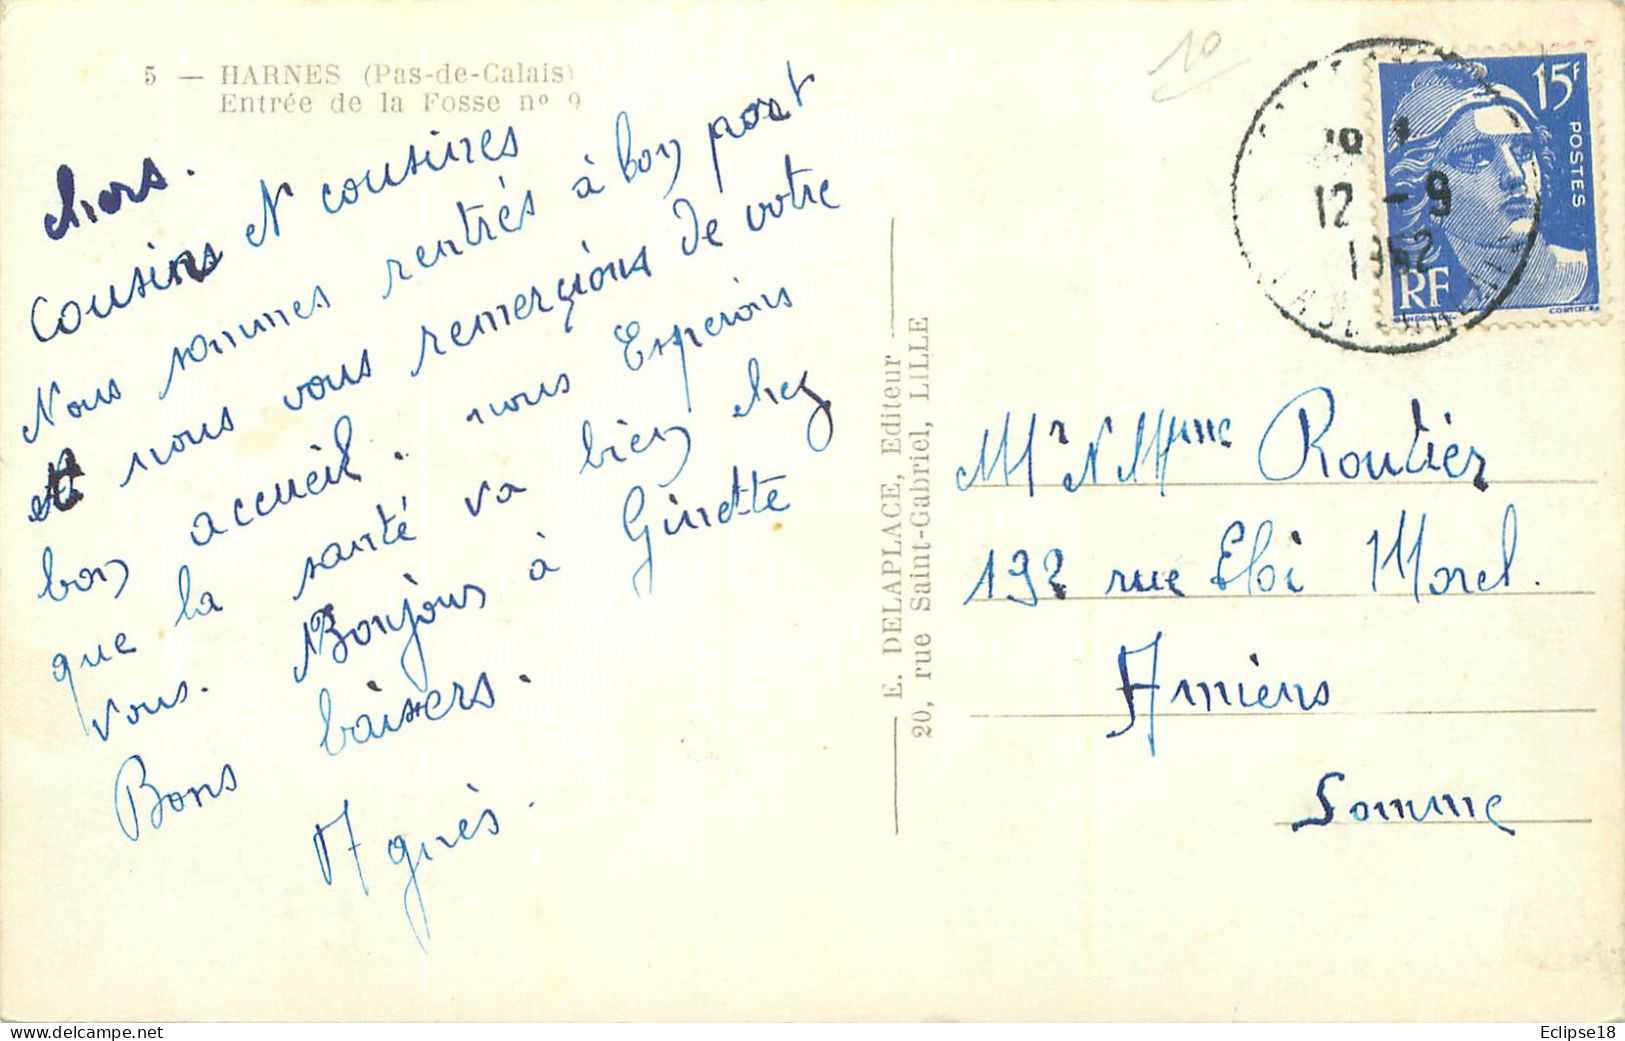 5 — HARNES (Pas-de-Calais)
Entrée de la Fosse nº 9
chers.
cousins et cousines
Nous sommes rentrés à bon port
et nous vous remerçions de votre
bon accueil. nous Esperons
que la santé va bien chez
vous. Bonjous à Ginette
Bons baisers.
Agnès.
E. DELAPLACE, Editeur
20, rue Saint-Gabriel, LILLE
10
12 - 9
1952
15F
POSTES
RF
GANDON
CORTOT
Mr et Mme Routier
192 rue Eloi Morel.
Amiens
Somme
Eclipse18